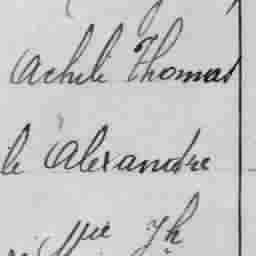 Achile Thomas
le Alexandre
Jh